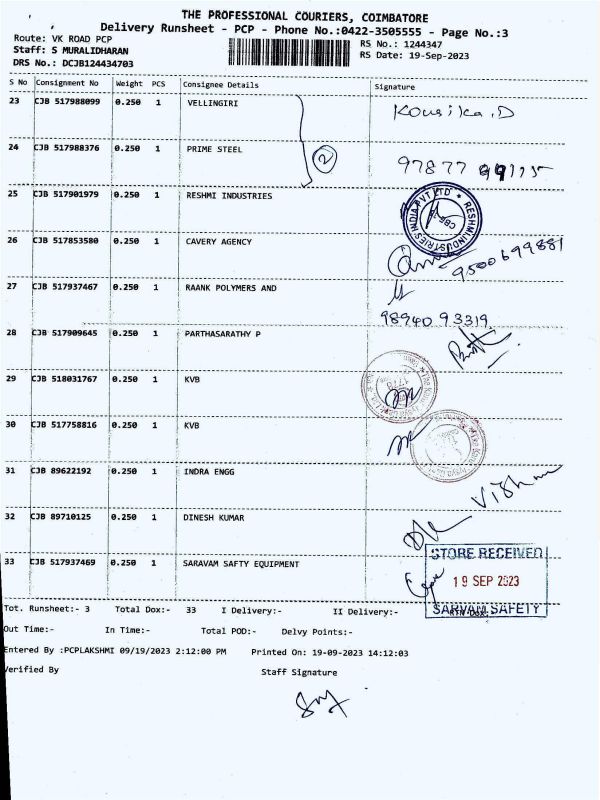 THE PROFESSIONAL COURIERS, COIMBATORE
Delivery Runsheet - PCP - Phone No.:0422-3505555 - Page No.:3
Route: VK ROAD PCP
RS No.: 1244347
Staff: S MURALIDHARAN
RS Date: 19-Sep-2023
DRS No.: DCJB124434703
S No Consignment No Weight PCS Consignee Details Signature
23 CJB 517988099 0.250 1 VELLINGIRI Kousika.D
2
24 CJB 517988376 0.250 1 PRIME STEEL
97877 99115
25 CJB 517901979 0.250 1 RESHMI INDUSTRIES
RESHMI INDUSTRIES INDIA PVT LTD
CBE
26 CJB 517853580 0.250 1 CAVERY AGENCY
9500699881
27 CJB 517937467 0.250 1 RAANK POLYMERS AND
98940 93319
28 CJB 517909645 0.250 1 PARTHASARATHY P
29 CJB 518031767 0.250 1 KVB
1778
30 CJB 517758816 0.250 1 KVB
31 CJB 89622192 0.250 1 INDRA ENGG
32 CJB 89710125 0.250 1 DINESH KUMAR
33 CJB 517937469 0.250 1 SARAVAM SAFTY EQUIPMENT
STORE RECEIVED
19 SEP 2023
SARVAM SAFETY
Tot. Runsheet:- 3 Total Dox:- 33 I Delivery:- II Delivery:- RTN Dox:
Out Time:- In Time:- Total POD:- Delvy Points:-
Entered By :PCPLAKSHMI 09/19/2023 2:12:00 PM Printed On: 19-09-2023 14:12:03
Verified By Staff Signature